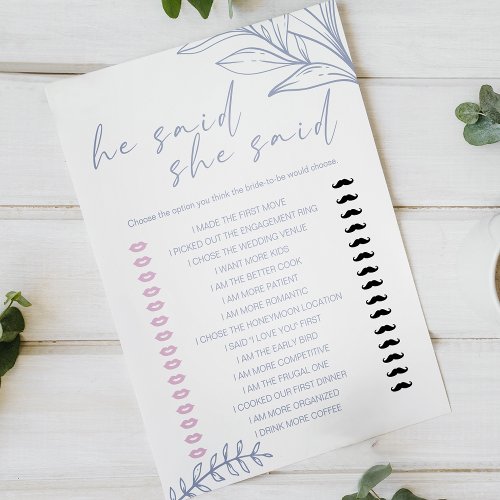 he said
she said
Choose the option you think the bride-to-be would choose.
I MADE THE FIRST MOVE
I PICKED OUT THE ENGAGEMENT RING
I CHOSE THE WEDDING VENUE
I WANT MORE KIDS
I AM THE BETTER COOK
I AM MORE PATIENT
I AM MORE ROMANTIC
I CHOSE THE HONEYMOON LOCATION
I SAID "I LOVE YOU" FIRST
I AM THE EARLY BIRD
I AM MORE COMPETITIVE
I AM THE FRUGAL ONE
I COOKED OUR FIRST DINNER
I AM MORE ORGANIZED
I DRINK MORE COFFEE